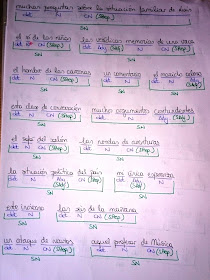 muchas preguntas sobre la situación familiar de Luis
det N CN (Sprep)
SN
el sí de las niñas las insólitas memorias de una vaca
det N CN (Sprep) det Ady (Sadj) N CN (Sprep)
SN SN
el hombre de las cavernas un comentario el maricho
det N CN (Sprep) det N det N Ady (Sadj)
SN SN SN
esta clase de conversación muchos argumentos contundentes
det N CN (Sprep) det N Ady (Sadj)
SN SN
el sofá del salón las novelas de aventuras
det N CN (Sprep) det N CN (Sprep)
SN SN
la situación política del país mi única esperanza
det N Ady (Sadj) CN (Sprep) det Ady (Sadj) N
SN SN
este invierno las seis de la mañana
det N det N CN (Sprep)
SN SN
un ataque de nervios aquel profesor de Música
det N CN (Sprep) det N CN (Sprep)
SN SN